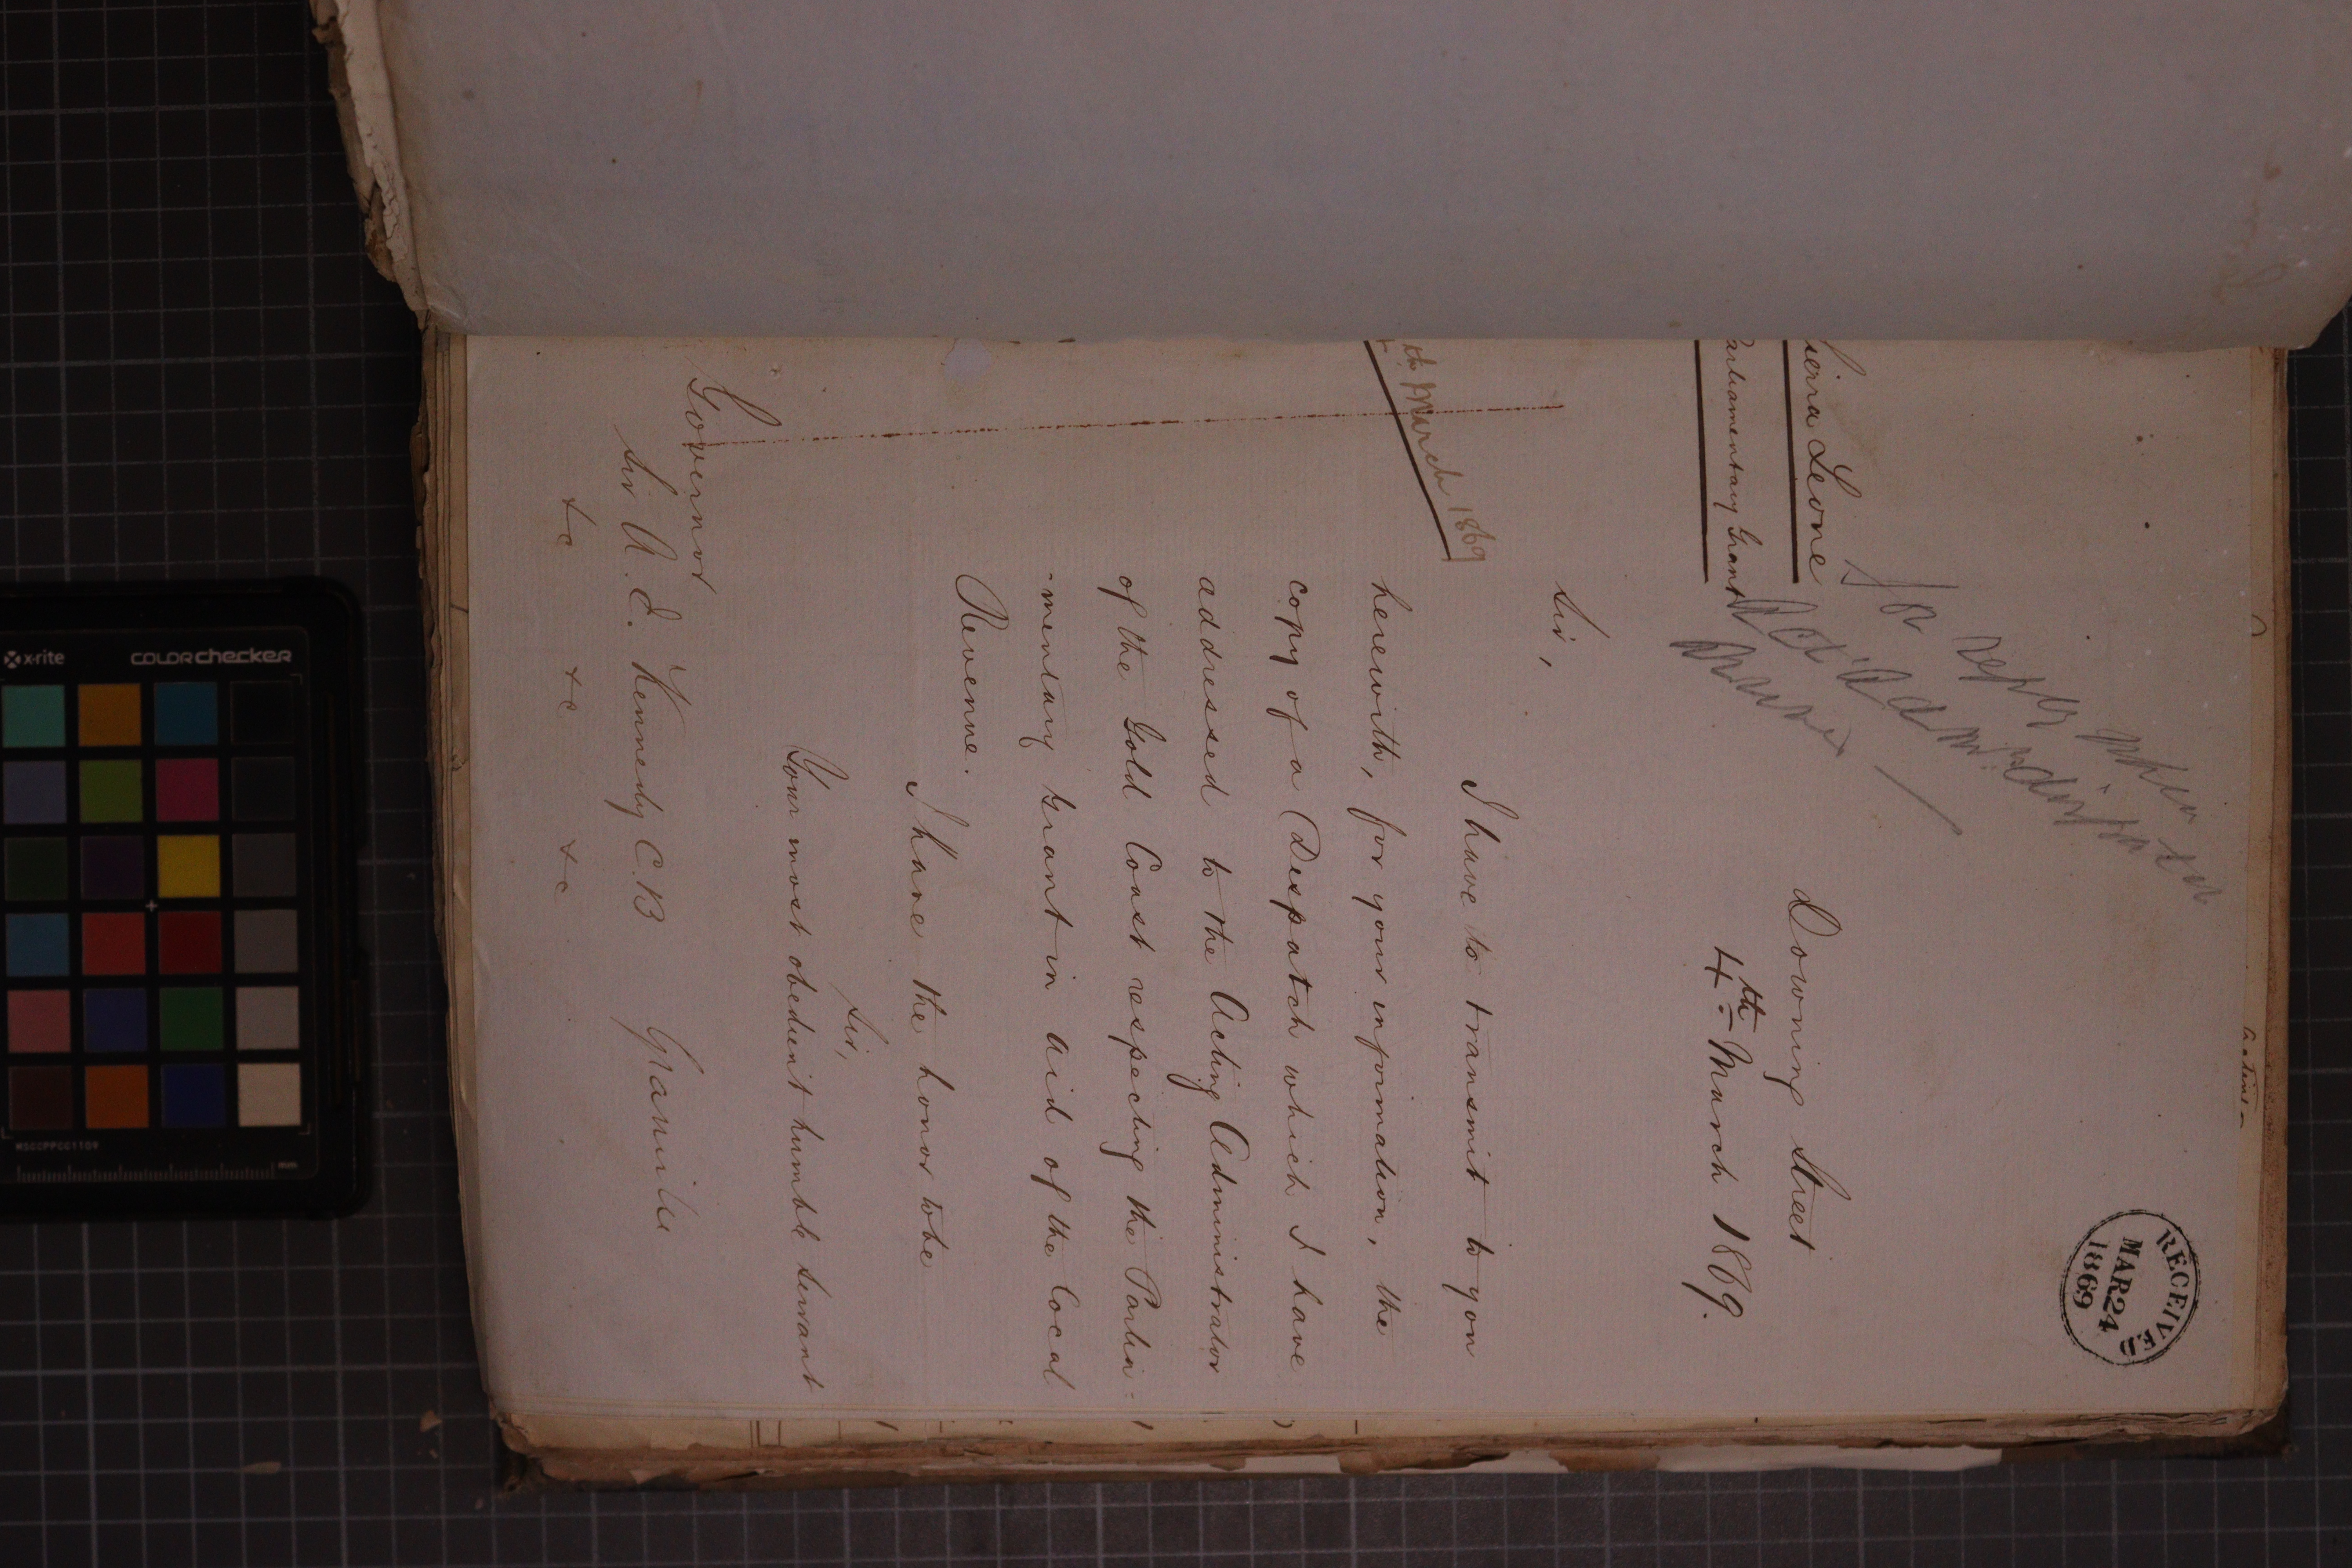 RECEIVED
MAR 24
1869
Sierra Leone
Parliamentary Grant
for reply when
Act'g Administrator
Downing Street
4th March 1869.
Sir,
I have to transmit to you
herewith, for your information, the
copy of a Despatch which I have
addressed to the Acting Administrator
of the Gold Coast respecting the Parlia-
-mentary Grant in aid of the Local
Revenue.
th March 1869
I have the honor to be
Sir,
Your most obedient humble servant
Granville
Governor
Sir A. E. Kennedy C.B
&c &c &c
x-rite
colorchecker
MSCCPPCC1109
mm